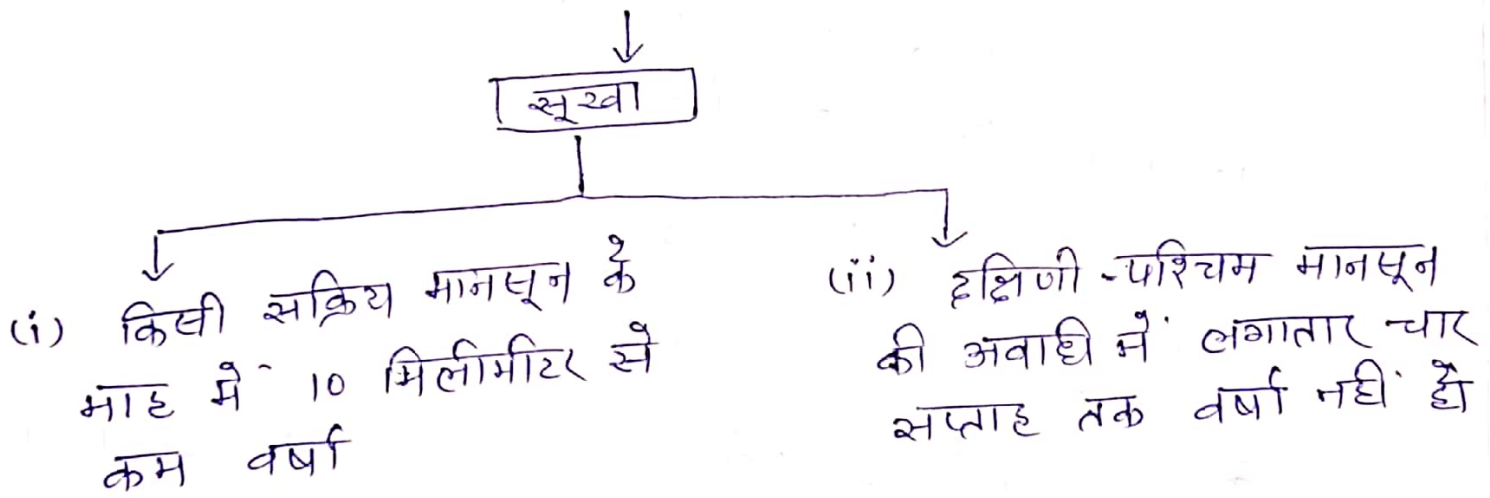 सूखा
(i) किसी सक्रिय मानसून के
माह में 10 मिलीमीटर से
कम वर्षा
(ii) दक्षिणी-पश्चिम मानसून
की अवाधि में लगातार चार
सप्ताह तक वर्षा नहीं हो